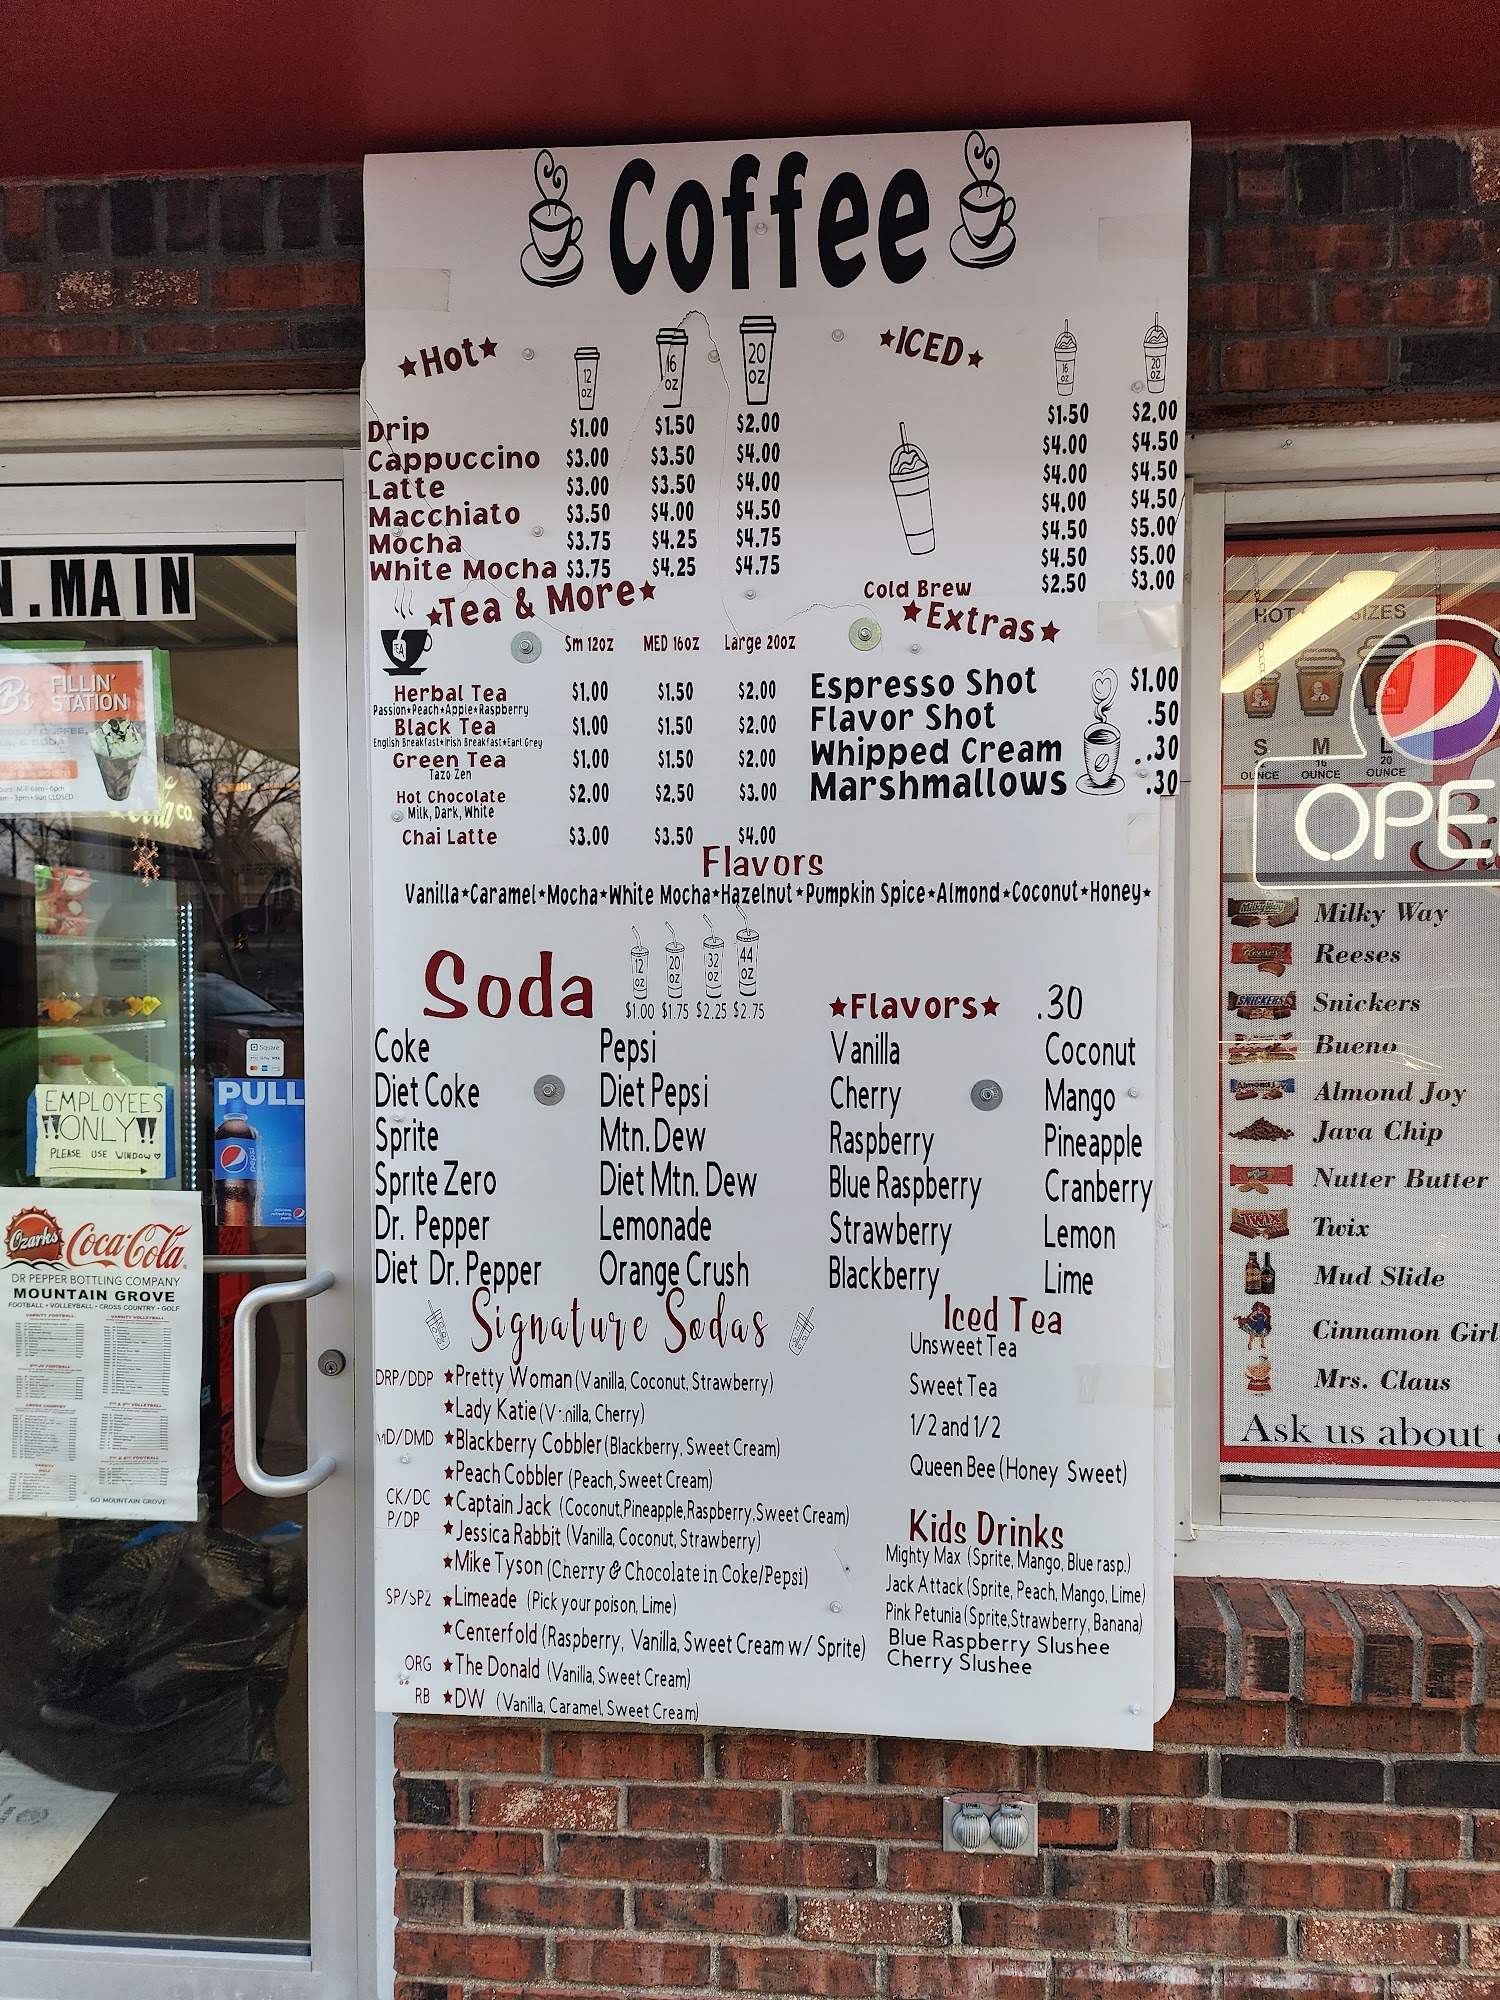 Coffee
★Hot★
12 oz
16 oz
20 oz
★ICED★
16 oz
20 oz
Drip $1.00 $1.50 $2.00 $1.50 $2.00
Cappuccino $3.00 $3.50 $4.00 $4.00 $4.50
Latte $3.00 $3.50 $4.00 $4.00 $4.50
Macchiato $3.50 $4.00 $4.50 $4.00 $4.50
Mocha $3.75 $4.25 $4.75 $4.50 $5.00
White Mocha $3.75 $4.25 $4.75 $4.50 $5.00
Cold Brew $2.50 $3.00
★Tea & More★
TEA
Sm 12oz MED 16oz Large 20oz
Herbal Tea $1.00 $1.50 $2.00
Passion★Peach★Apple★Raspberry
Black Tea $1.00 $1.50 $2.00
English Breakfast★Irish Breakfast★Earl Grey
Green Tea $1.00 $1.50 $2.00
Tazo Zen
Hot Chocolate $2.00 $2.50 $3.00
Milk, Dark, White
Chai Latte $3.00 $3.50 $4.00
★Extras★
Espresso Shot $1.00
Flavor Shot .50
Whipped Cream .30
Marshmallows .30
Flavors
Vanilla★Caramel★Mocha★White Mocha★Hazelnut★Pumpkin Spice★Almond★Coconut★Honey★
Soda
12 oz 20 oz 32 oz 44 oz
$1.00 $1.75 $2.25 $2.75
Coke Pepsi
Diet Coke Diet Pepsi
Sprite Mtn. Dew
Sprite Zero Diet Mtn. Dew
Dr. Pepper Lemonade
Diet Dr. Pepper Orange Crush
★Flavors★ .30
Vanilla Coconut
Cherry Mango
Raspberry Pineapple
Blue Raspberry Cranberry
Strawberry Lemon
Blackberry Lime
Signature Sodas
DRP/DDP ★Pretty Woman (Vanilla, Coconut, Strawberry)
★Lady Katie (V nilla, Cherry)
MD/DMD ★Blackberry Cobbler (Blackberry, Sweet Cream)
★Peach Cobbler (Peach, Sweet Cream)
CK/DC ★Captain Jack (Coconut,Pineapple,Raspberry,Sweet Cream)
P/DP ★Jessica Rabbit (Vanilla, Coconut, Strawberry)
★Mike Tyson (Cherry & Chocolate in Coke/Pepsi)
SP/SPZ ★Limeade (Pick your poison, Lime)
★Centerfold (Raspberry, Vanilla, Sweet Cream w/ Sprite)
ORG ★The Donald (Vanilla, Sweet Cream)
RB ★DW (Vanilla, Caramel, Sweet Cream)
Iced Tea
Unsweet Tea
Sweet Tea
1/2 and 1/2
Queen Bee (Honey Sweet)
Kids Drinks
Mighty Max (Sprite, Mango, Blue rasp.)
Jack Attack (Sprite, Peach, Mango, Lime)
Pink Petunia (Sprite,Strawberry, Banana)
Blue Raspberry Slushee
Cherry Slushee
N. MAIN
B's FILLIN'
STATION
Sun CLOSED
CO.
Square
PULL
pepsi
EMPLOYEES
!!ONLY!!
PLEASE USE WINDOW
Ozarks Coca-Cola
DR PEPPER BOTTLING COMPANY
MOUNTAIN GROVE
FOOTBALL • VOLLEYBALL • CROSS COUNTRY • GOLF
VARSITY FOOTBALL VARSITY VOLLEYBALL
GO MOUNTAIN GROVE
HOT SIZES
S M L
OUNCE 16 OUNCE 20 OUNCE
OPE
Milky Way
Reeses
Snickers
Bueno
Almond Joy
Java Chip
Nutter Butter
Twix
Mud Slide
Cinnamon Girl
Mrs. Claus
Ask us about